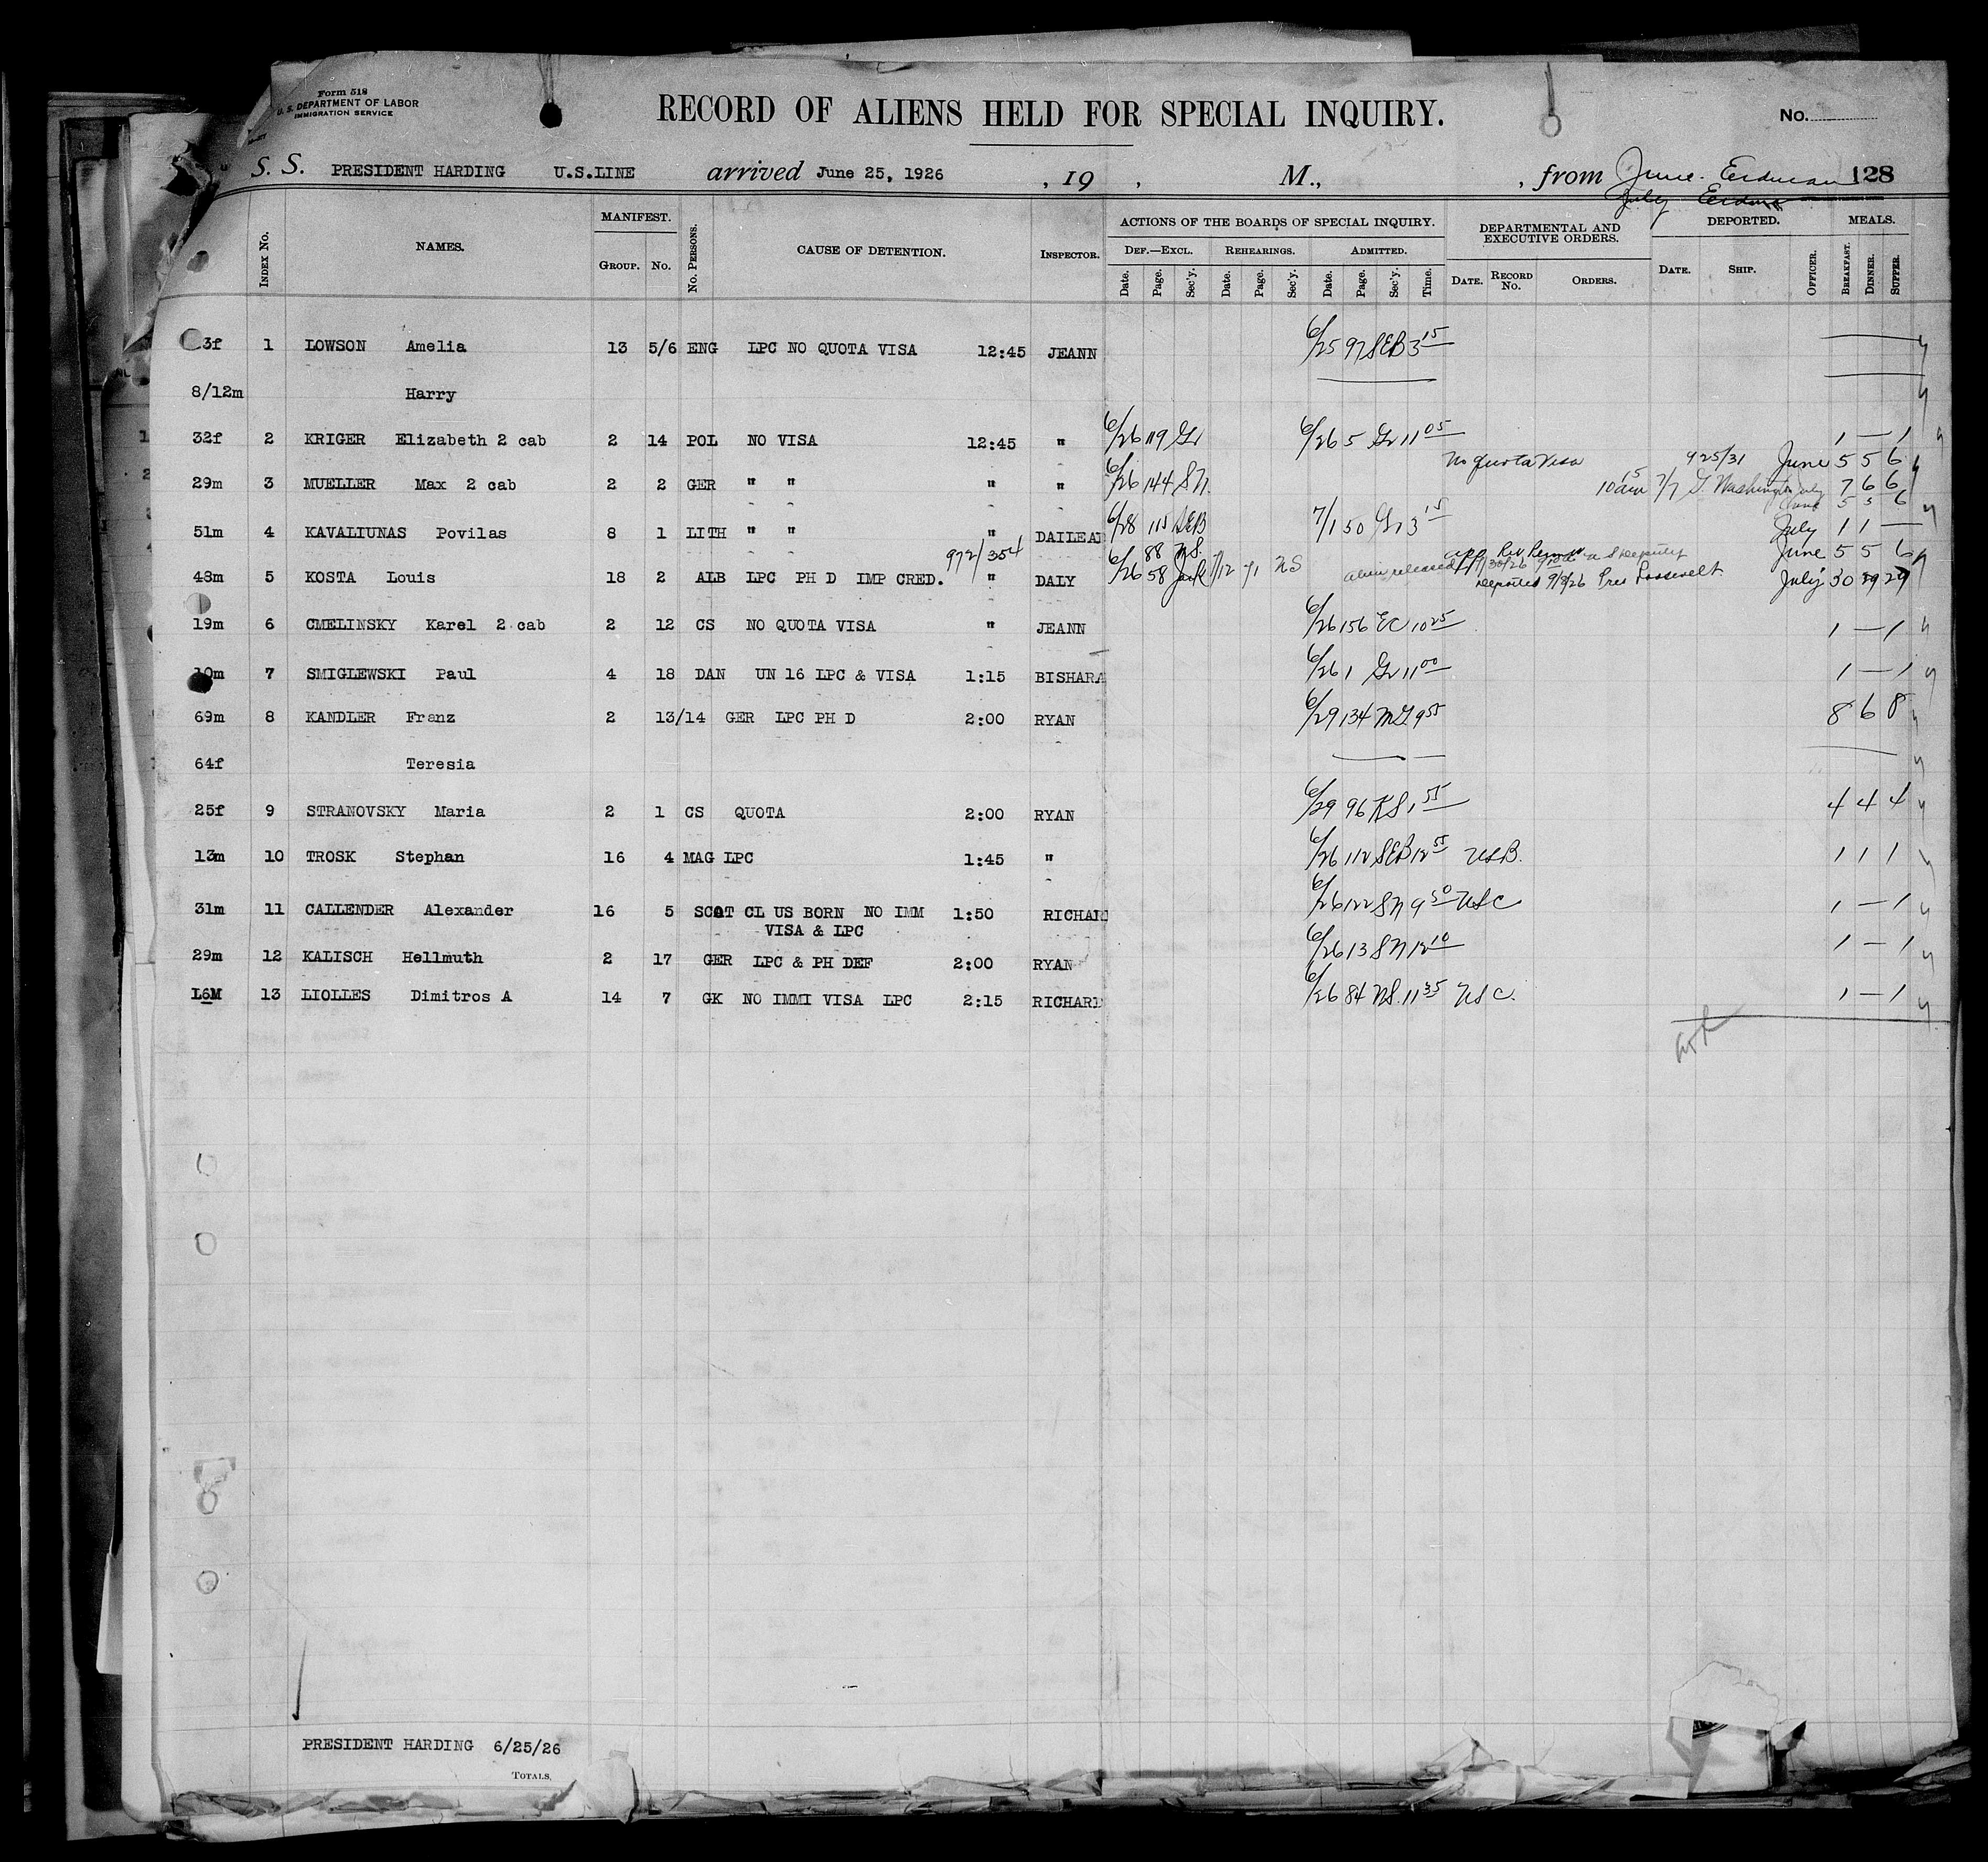 Form 518
U. S. DEPARTMENT OF LABOR
IMMIGRATION SERVICE
RECORD OF ALIENS HELD FOR SPECIAL INQUIRY.
No.
S. S. PRESIDENT HARDING U.S.LINE arrived June 25, 1926 , 19 , M., , from June. Erdman 128
July
INDEX No. NAMES. MANIFEST. GROUP. No. No. PERSONS. CAUSE OF DETENTION. INSPECTOR. ACTIONS OF THE BOARDS OF SPECIAL INQUIRY. DEPARTMENTAL AND EXECUTIVE ORDERS. DEPORTED. MEALS.
DEF.—EXCL. REHEARINGS. ADMITTED.
Date. Page. Sec'y. Date. Page. Sec'y. Date. Page. Sec'y. Time. DATE. RECORD No. ORDERS. DATE. SHIP. OFFICER. BREAKFAST. DINNER. SUPPER.
3f 1 LOWSON Amelia 13 5/6 ENG LPC NO QUOTA VISA 12:45 JEANN 6/25 97 SEB 3 15
8/12m Harry
32f 2 KRIGER Elizabeth 2 cab 2 14 POL NO VISA 12:45 " 6/26 119 Gr 6/26 5 Gr 11 05 1 — 1
No quota Visa 925/31 June 5 5 6
29m 3 MUELLER Max 2 cab 2 2 GER " " " " 6/26 144 SN. 10 15 am 7/7 G. Washington July 7 6 6
June 5 5 6
51m 4 KAVALIUNAS Povilas 8 1 LITH " " " DAILEAD 6/28 115 SEB 7/1 50 Gr 3 15 July 1 1 —
972/354 88 NS. June 5 5 6
48m 5 KOSTA Louis 18 2 ALB LPC PH D IMP CRED. " DALY 6/26 58 7/12 71 NS alien released 7/30/26
Deported 9/8/26 Pres Roosevelt. July 30 29 29
19m 6 CMELINSKY Karel 2 cab 2 12 CS NO QUOTA VISA " JEANN 6/26 156 EC 10 25 1 — 1
10m 7 SMIGLEWSKI Paul 4 18 DAN UN 16 LPC & VISA 1:15 BISHARA 6/26 1 Gr 11 00 1 — 1
69m 8 KANDLER Franz 2 13/14 GER LPC PH D 2:00 RYAN 6/29 134 9 55 8 6 8
64f Teresia
25f 9 STRANOVSKY Maria 2 1 CS QUOTA 2:00 RYAN 6/29 96 KS 1 55 4 4 4
13m 10 TROSK Stephan 16 4 MAG LPC 1:45 " 6/26 112 SEB 12 55 USB. 1 1 1
31m 11 CALLENDER Alexander 16 5 SCOT CL US BORN NO IMM 1:50 RICHARD 6/26 122 SN 9 50 USC 1 — 1
VISA & LPC
29m 12 KALISCH Hellmuth 2 17 GER LPC & PH DEF 2:00 RYAN 6/26 13 SN 12 10 1 — 1
16M 13 LIOLLES Dimitros A 14 7 GK NO IMMI VISA LPC 2:15 RICHARD 6/26 84 NS. 11 35 USC. 1 — 1
PRESIDENT HARDING 6/25/26
TOTALS,